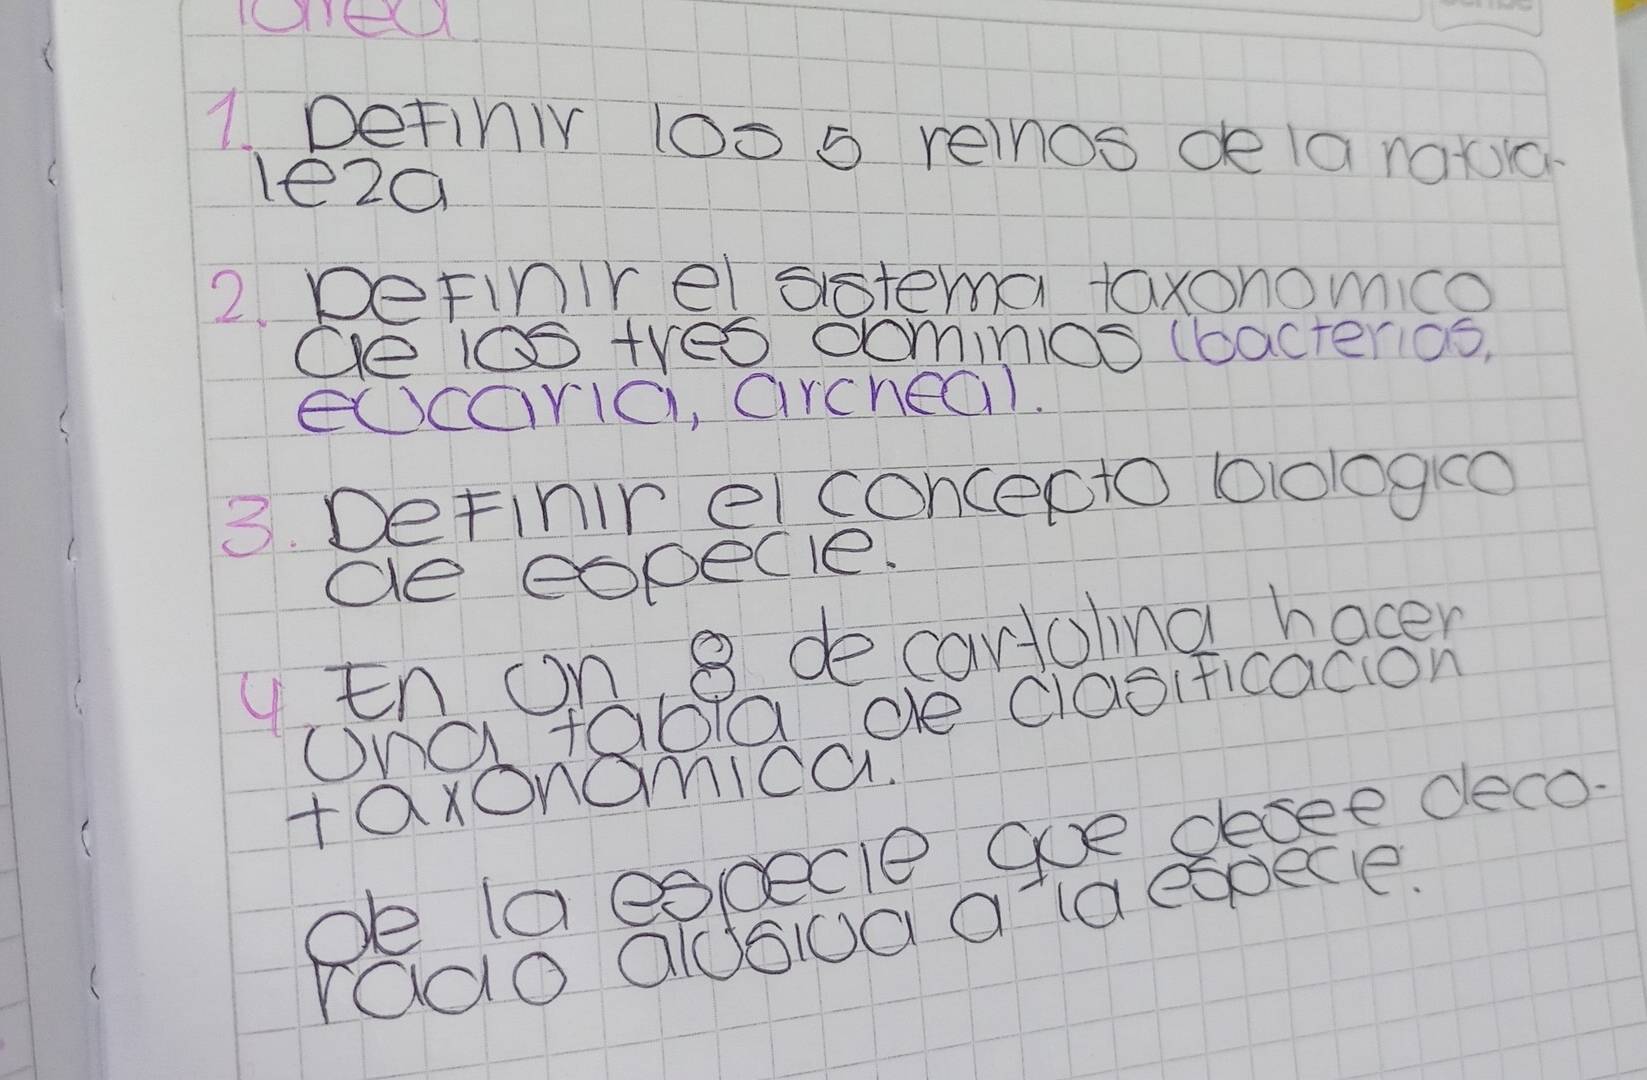 Tarea
1. Definir los 5 reinos de la natura-
leza
2. Definir el sistema taxonomico
de los tres dominios (bacterias,
eucaria, archea).
3. Definir el concepto biologico
de especie.
4. En un 8 de cartulina hacer
una tabla de clasificacion
taxonomica.
de la especie que desee deco-
rado alusiva a la especie.